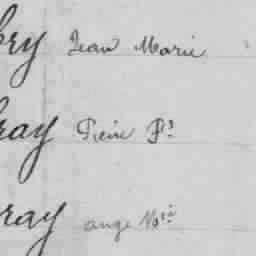 bry Jean Marie
ray Pierre Ps
ray ange